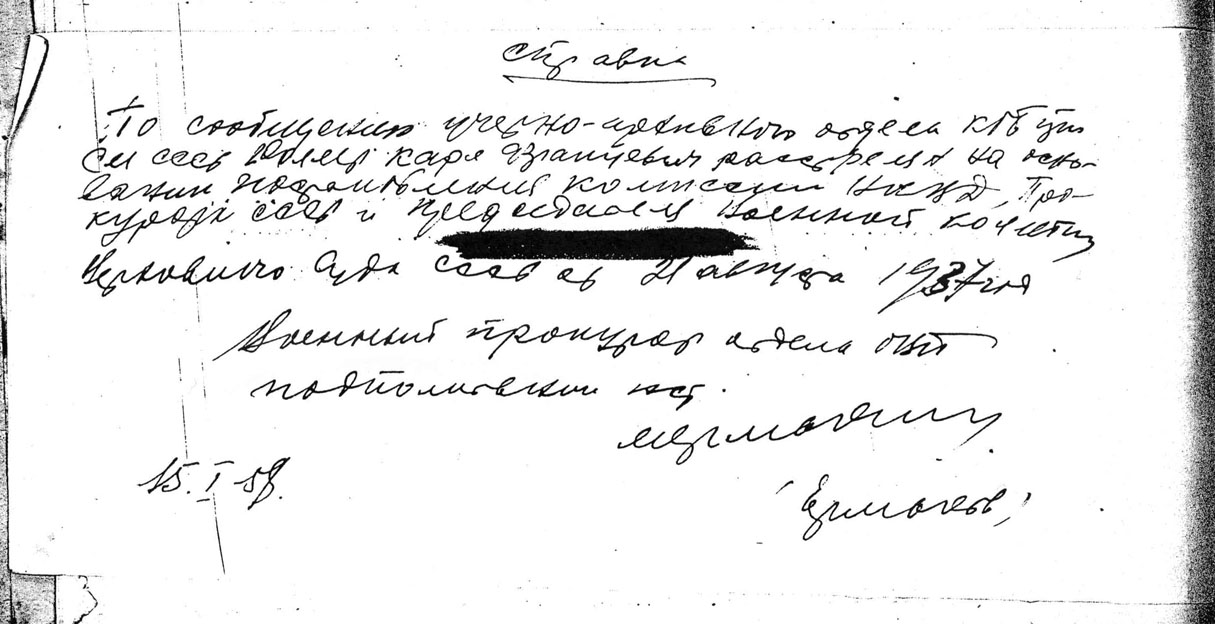 Справка
По сообщению учетно-архивного отдела КГБ при
СМ СССР Карл Францевич расстрелян на осно-
вании постановления комиссии НКВД, Про-
курора СССР и Председателя Военной коллегии
Верховного Суда СССР от 21 августа 1937 года
Военный прокурор отдела ГВП
подполковник юст.
15.I.58.
(Ермаков)